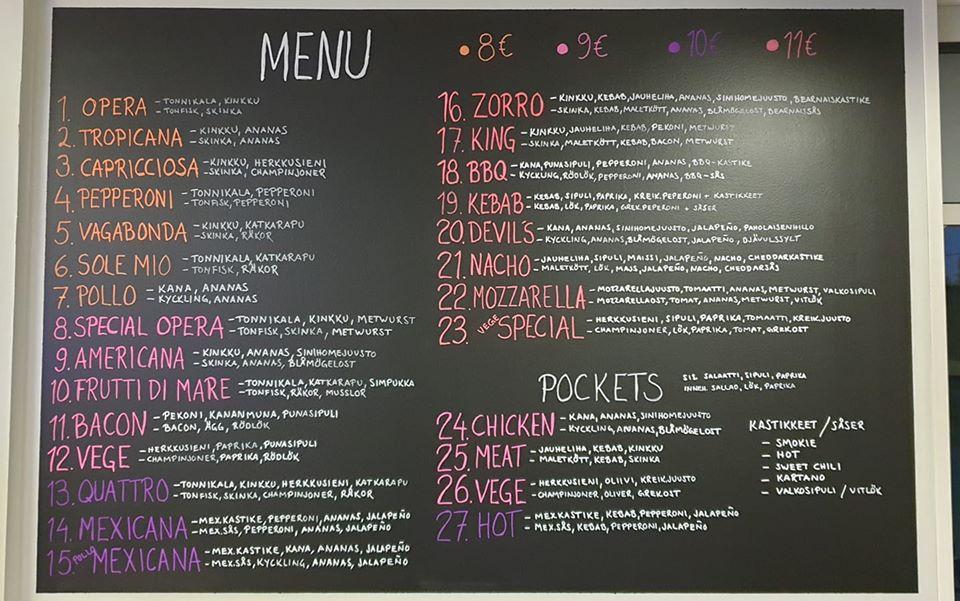 MENU
• 8€ • 9€ • 10€ • 11€
1. OPERA - TONNIKALA, KINKKU
- TONFISK, SKINKA
2. TROPICANA - KINKKU, ANANAS
- SKINKA, ANANAS
3. CAPRICCIOSA - KINKKU, HERKKUSIENI
- SKINKA, CHAMPINJONER
4. PEPPERONI - TONNIKALA, PEPPERONI
- TONFISK, PEPPERONI
5. VAGABONDA - KINKKU, KATKARAPU
- SKINKA, RÄKOR
6. SOLE MIO - TONNIKALA, KATKARAPU
- TONFISK, RÄKOR
7. POLLO - KANA, ANANAS
- KYCKLING, ANANAS
8. SPECIAL OPERA - TONNIKALA, KINKKU, METWURST
- TONFISK, SKINKA, METWURST
9. AMERICANA - KINKKU, ANANAS, SINIHOMEJUUSTO
- SKINKA, ANANAS, BLÅMÖGELOST
10. FRUTTI DI MARE - TONNIKALA, KATKARAPU, SIMPUKKA
- TONFISK, RÄKOR, MUSSLOR
11. BACON - PEKONI, KANANMUNA, PUNASIPULI
- BACON, ÄGG, RÖDLÖK
12. VEGE - HERKKUSIENI, PAPRIKA, PUNASIPULI
- CHAMPINJONER, PAPRIKA, RÖDLÖK
13. QUATTRO - TONNIKALA, KINKKU, HERKKUSIENI, KATKARAPU
- TONFISK, SKINKA, CHAMPINJONER, RÄKOR
14. MEXICANA - MEX.KASTIKE, PEPPERONI, ANANAS, JALAPEÑO
- MEX.SÅS, PEPPERONI, ANANAS, JALAPEÑO
15. POLLO MEXICANA - MEX.KASTIKE, KANA, ANANAS, JALAPEÑO
- MEX.SÅS, KYCKLING, ANANAS, JALAPEÑO
16. ZORRO - KINKKU, KEBAB, JAUHELIHA, ANANAS, SINIHOMEJUUSTO, BEARNAISKASTIKE
- SKINKA, KEBAB, MALETKÖTT, ANANAS, BLÅMÖGELOST, BEARNAISSÅS
17. KING - KINKKU, JAUHELIHA, KEBAB, PEKONI, METWURST
- SKINKA, MALETKÖTT, KEBAB, BACON, METWURST
18. BBQ - KANA, PUNASIPULI, PEPPERONI, ANANAS, BBQ-KASTIKE
- KYCKLING, RÖDLÖK, PEPPERONI, ANANAS, BBQ-SÅS
19. KEBAB - KEBAB, SIPULI, PAPRIKA, KREIK.PEPERONI + KASTIKKEET
- KEBAB, LÖK, PAPRIKA, GREK.PEPERONI + SÅSER
20. DEVILS - KANA, ANANAS, SINIHOMEJUUSTO, JALAPEÑO, PAHOLAISENHILLO
- KYCKLING, ANANAS, BLÅMÖGELOST, JALAPEÑO, DJÄVULSSYLT
21. NACHO - JAUHELIHA, SIPULI, MAISSI, JALAPEÑO, NACHO, CHEDDARKASTIKE
- MALETKÖTT, LÖK, MAJS, JALAPEÑO, NACHO, CHEDDARSÅS
22. MOZZARELLA - MOZZARELLAJUUSTO, TOMAATTI, ANANAS, METWURST, VALKOSIPULI
- MOZZARELLAOST, TOMAT, ANANAS, METWURST, VITLÖK
23. VEGE SPECIAL - HERKKUSIENI, SIPULI, PAPRIKA, TOMAATTI, KREIK.JUUSTO
- CHAMPINJONER, LÖK, PAPRIKA, TOMAT, GREKOST
POCKETS SIS. SALAATTI, SIPULI, PAPRIKA
INNEH. SALLAD, LÖK, PAPRIKA
24. CHICKEN - KANA, ANANAS, SINIHOMEJUUSTO
- KYCKLING, ANANAS, BLÅMÖGELOST
25. MEAT - JAUHELIHA, KEBAB, KINKKU
- MALETKÖTT, KEBAB, SKINKA
26. VEGE - HERKKUSIENI, OLIIVI, KREIK.JUUSTO
- CHAMPINJONER, OLIVER, GREKOST
27. HOT - MEX.KASTIKE, KEBAB, PEPPERONI, JALAPEÑO
- MEX.SÅS, KEBAB, PEPPERONI, JALAPEÑO
KASTIKKEET / SÅSER
- SMOKIE
- HOT
- SWEET CHILI
- KARTANO
- VALKOSIPULI / VITLÖK